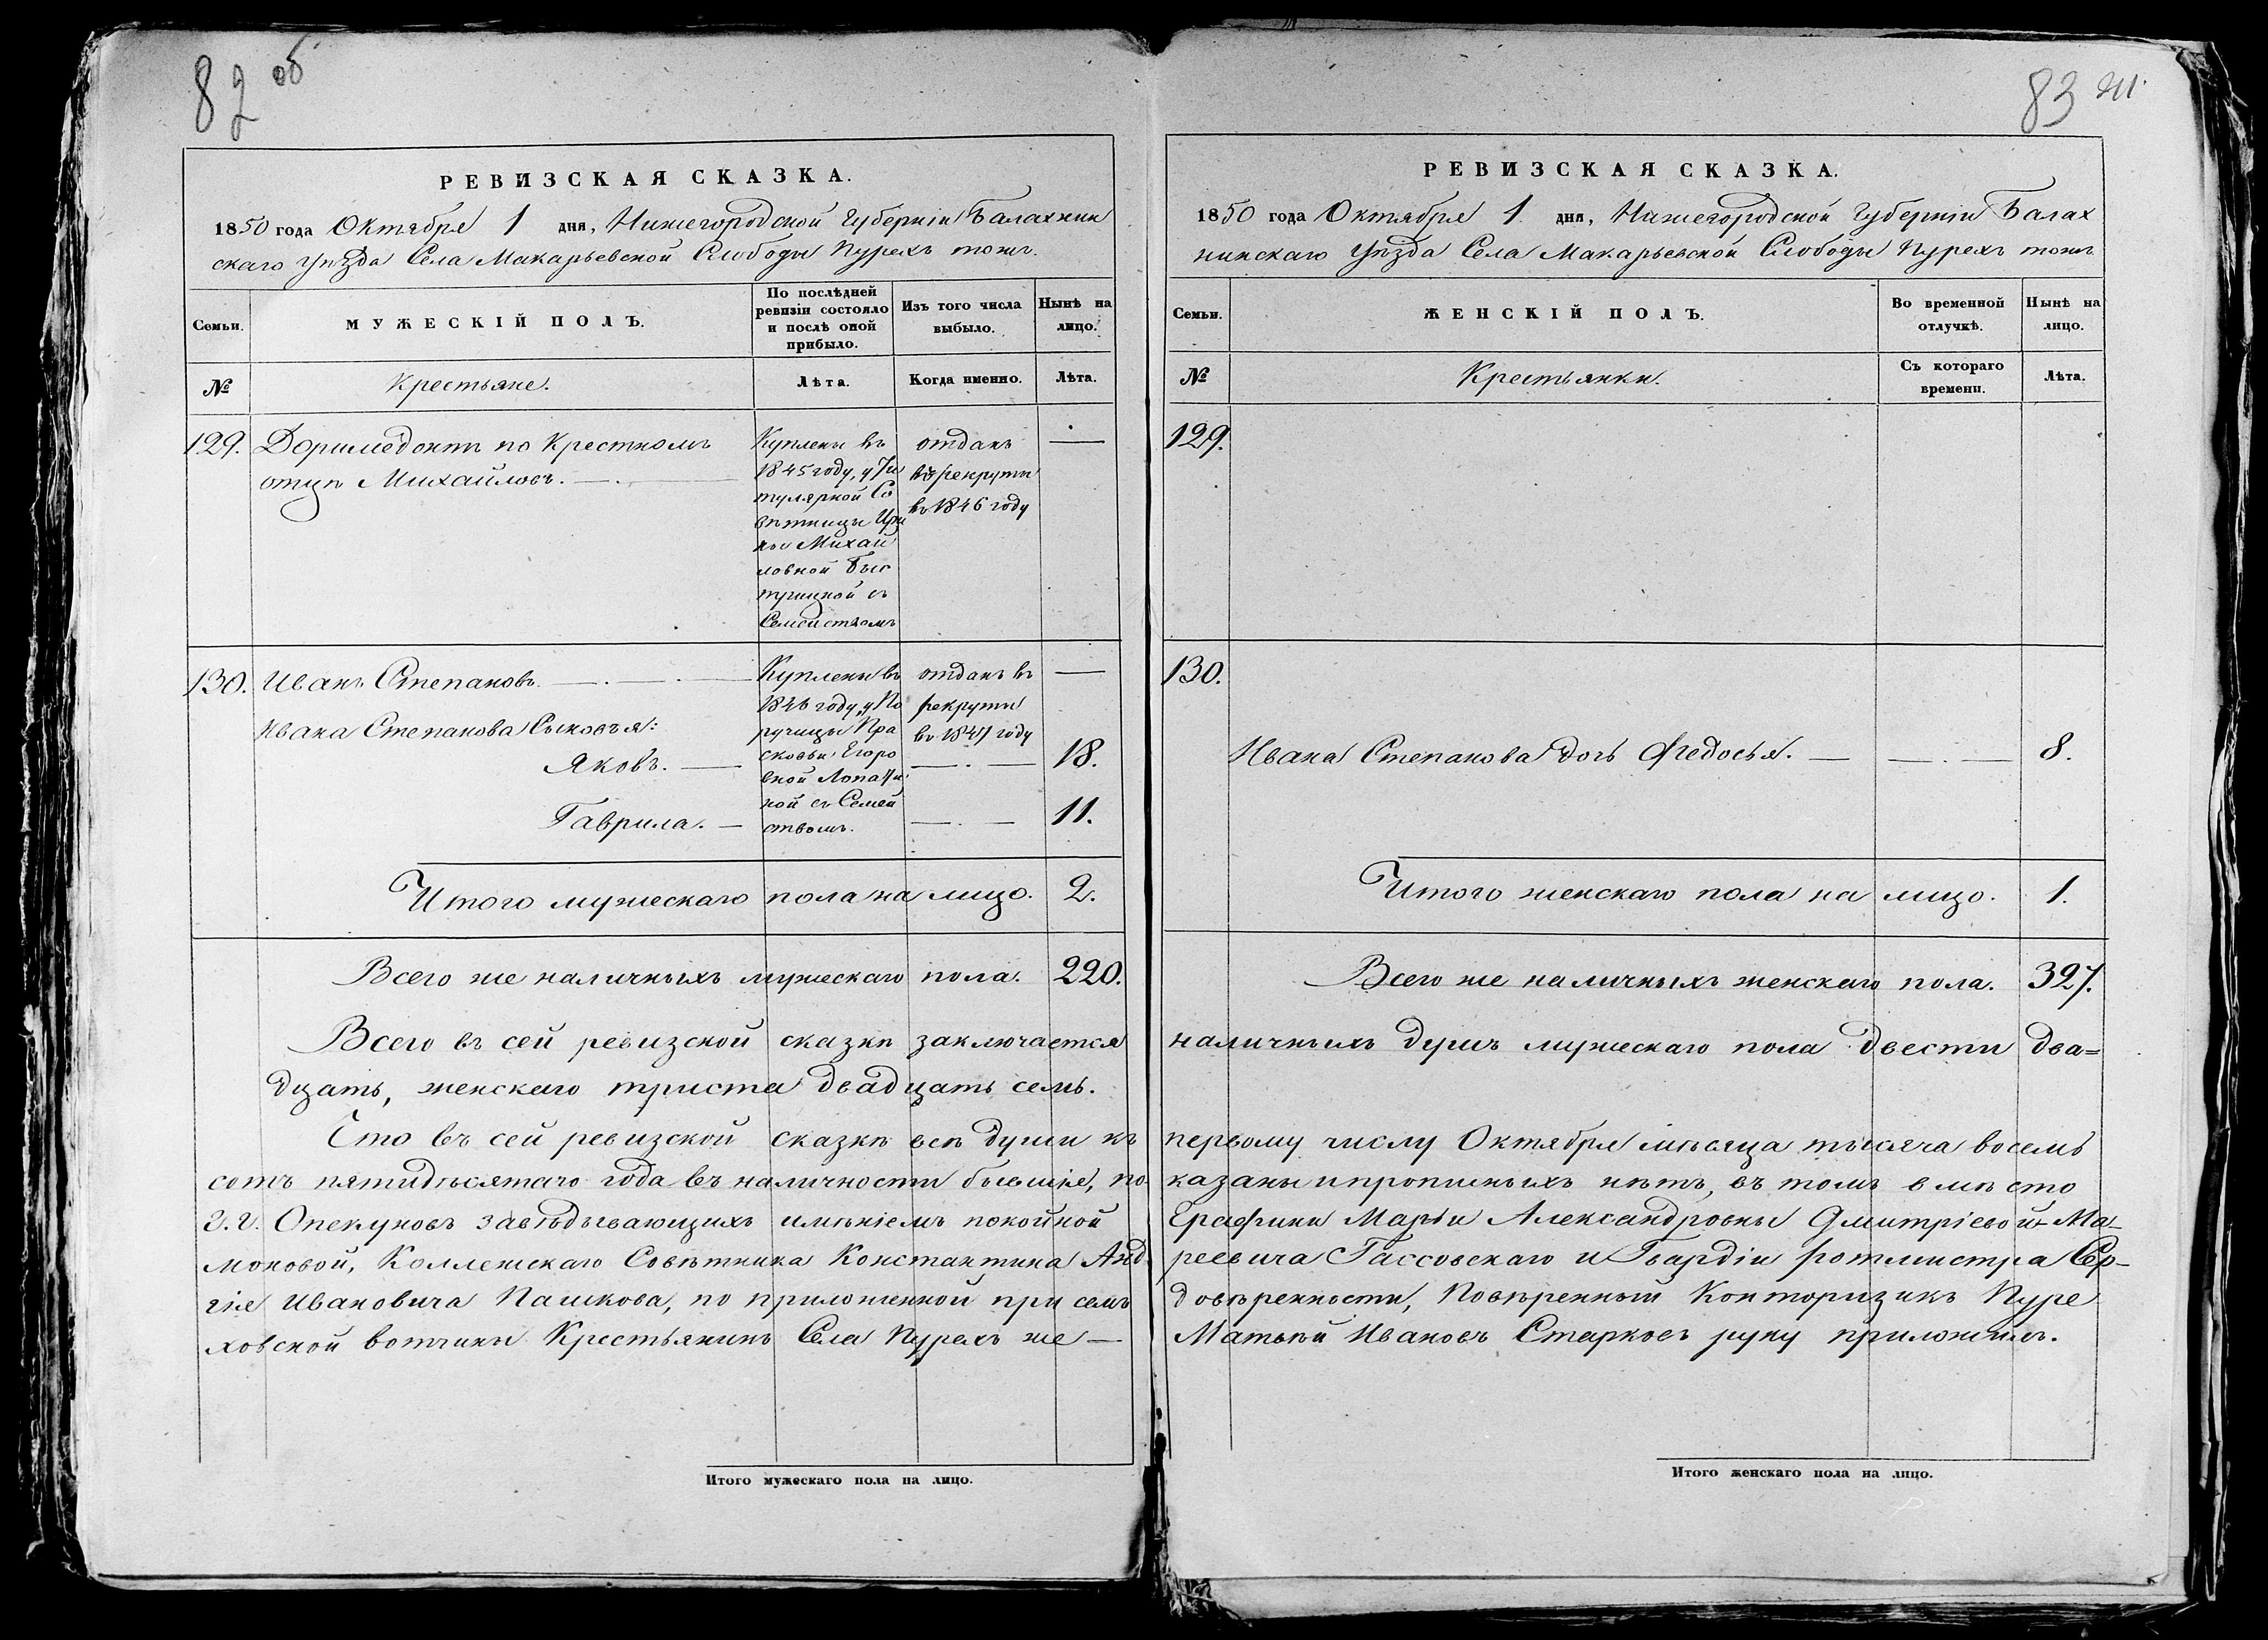 82 об
РЕВИЗСКАЯ СКАЗКА.
1850 года Октября 1 дня, Нижегородской Губерніи Балахнин
скаго уѣзда Села Макарьевской Слободы Пурехъ тожъ.
Семьи.
МУЖЕСКІЙ ПОЛЪ.
По послѣдней
ревизіи состояло
и послѣ оной
прибыло.
Изъ того числа
выбыло.
Нынѣ на
лицо.
№
Крестьяне.
Лѣта.
Когда именно.
Лѣта.
129.
Доримедонтъ по Крестномъ
отцѣ Михайловъ. —.
Куплены въ
1845 году, у Ти
тулярной Со
вѣтницы Ири
ны Михай
ловной Быс
трицкой съ
Семействомъ
отданъ
въ рекруты
въ 1846 году
—
130.
Иванъ Степановъ. —.—.—
Куплены въ
1846 году, у По
ручицы Пра
сковьи Егоро
вной Лопати
ной съ Семей
ствомъ.
отданъ въ
рекруты
въ 1847 году
—
Ивана Степанова Сыновья:
Яковъ. —
—.—
18.
Гаврила. —
—.—
11.
Итого мужескаго пола на лицо. 2.
Всего же наличныхъ мужескаго пола. 220.
Всего въ сей ревизской сказкѣ заключается
дцать, женскаго триста двадцать семь.
Что въ сей ревизской сказкѣ всѣ души къ
сотъ пятидѣсятаго года въ наличности бывшіе, по
Г.Г. Опекуновъ завѣдывающихъ имѣніемъ покойной
моновой, Коллежскаго Совѣтника Константина Анд
гія Ивановича Пашкова, по приложенной при семъ
ховской вотчины Крестьянинъ Села Пурехъ же —
Итого мужескаго пола на лицо.
83
РЕВИЗСКАЯ СКАЗКА.
1850 года Октября 1 дня, Нижегородской Губерніи Балах
нинскаго Уѣзда Села Макарьевской Слободы Пурехъ тожъ
Семьи.
ЖЕНСКІЙ ПОЛЪ.
Во временной
отлучкѣ.
Нынѣ на
лицо.
№
Крестьянки.
Съ котораго
времени.
Лѣта.
129.
130.
Ивана Степанова дочь Федосья. — —.— 8.
Итого женскаго пола на лицо. 1.
Всего же наличныхъ женскаго пола. 327.
наличныхъ душъ мужескаго пола двести два=
первому числу Октября мѣсяца тысяча восемь
казаны и прописныхъ нѣтъ, въ томъ вмѣсто
Ерафини Маріи Александровны Дмитріевой-Ма-
реевича Гассовскаго и Гвардіи ротмистра Сер-
довѣренности, Повѣренный Конторщикъ Пуре
Матвѣй Ивановъ Старковъ руку приложилъ.
Итого женскаго пола на лицо.